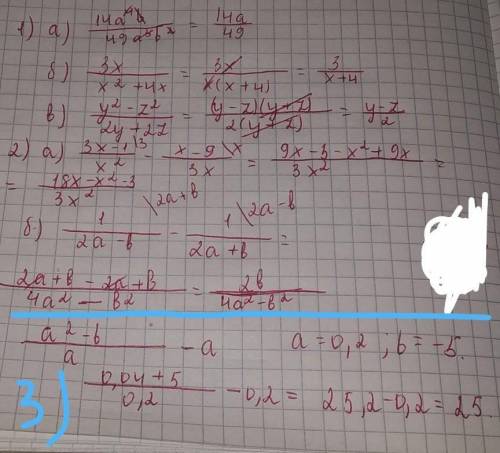 1) а) 14a⁴b / 49a³b² = 14a / 49
б) 3x / x² + 4x = 3x / x(x+4) = 3 / x+4
в) y² - z² / 2y + 2z = (y-z)(y+z) / 2(y+z) = y-z / 2
2) а) 3x-1 \3 / x² - x-9 \x / 3x = 9x - 3 - x² + 9x / 3x² =
= 18x - x² - 3 / 3x²
б) 1 \2a+b / 2a-b - 1 \2a-b / 2a+b =
2a+b - 2a+b / 4a² - b² = 2b / 4a² - b²
a² - b / a - a a = 0,2 ; b = -5.
3) 0,04 + 5 / 0,2 - 0,2 = 25,2 - 0,2 = 25